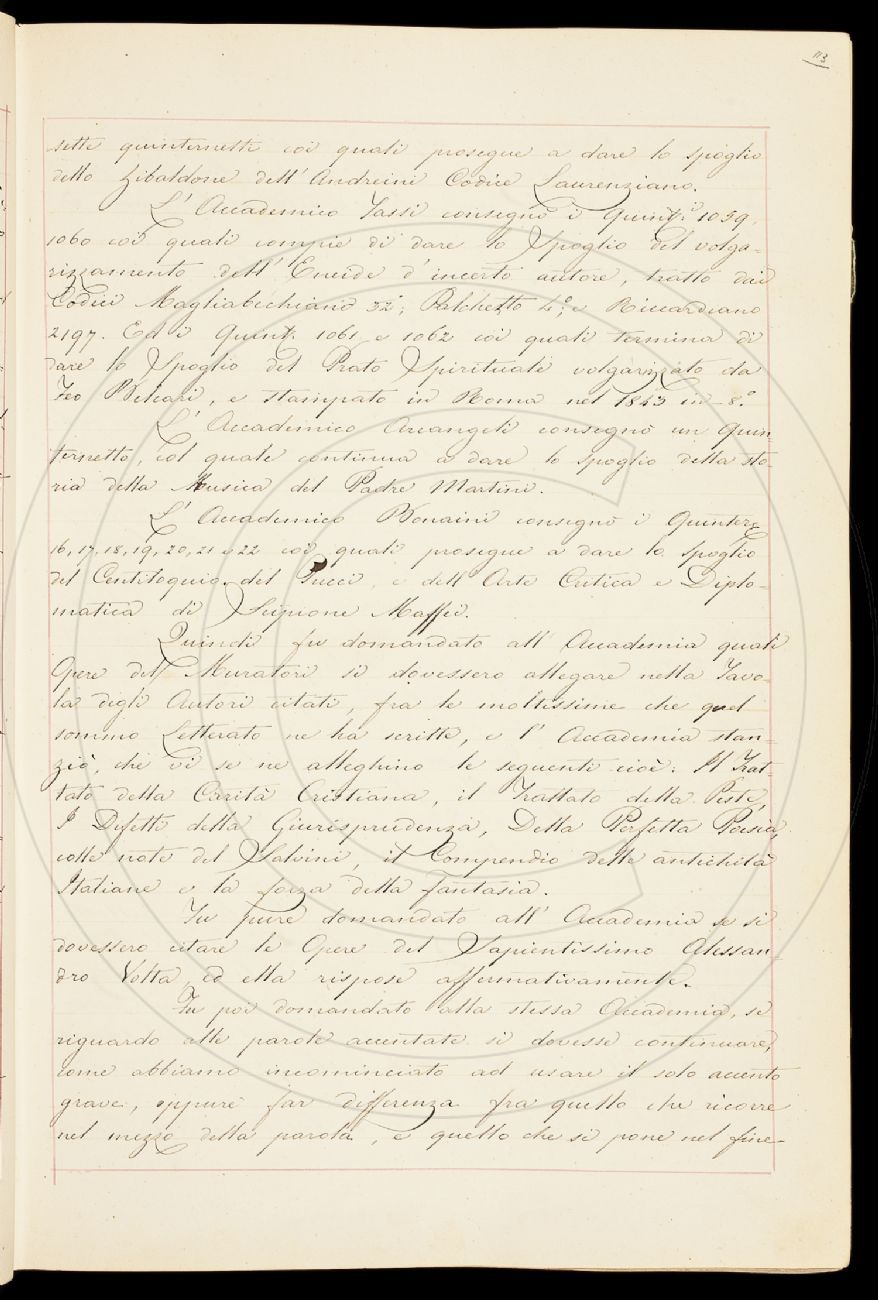 113
sette quinternetti coi quali prosegue a dare lo spoglio
dello Zibaldone dell'Andreini Codice Laurenziano.
L'Accademico Tassi consegnò i Quint.ⁱ 1059,
1060 coi quali compie di dare lo Spoglio del volga-
rizzamento dell'Eneide d'incerto autore, tratto dai
Codici Magliabechiano 32, Palchetto 4.° e Riccardiano
2197. Ed i Quint. 1061 e 1062 coi quali termina di
dare lo Spoglio del Prato Spirituale volgarizzato da
Feo Belcari, e stampato in Roma nel 1843 in-8.°
L'Accademico Arcangeli consegnò un Quin-
ternetto, col quale continua a dare lo spoglio della sto-
ria della Musica del Padre Martini.
L'Accademico Bonaini consegnò i Quinter.
16, 17, 18, 19, 20, 21 e 22 coi quali prosegue a dare lo Spoglio
del Centiloquio del Pucci, e dell'Arte Critica e Diplo-
matica di Scipione Maffei.
Quindi fu domandato all'Accademia quali
Opere del Muratori si dovessero allegare nella Tavo-
la degli Autori citati, fra le moltissime che quel
sommo Letterato ne ha scritte, e l'Accademia stan-
ziò, che vi se ne alleghino le seguenti cioè: Il Trat-
tato della Carità Cristiana, il Trattato della Peste,
I Difetti della Giurisprudenza, Della Perfetta Poesia,
colle note del Salvini, il Compendio delle antichità
Italiane e la forza della fantasia.
Fu pure domandato all'Accademia se si
dovessero citare le Opere del Sapientissimo Alessan-
dro Volta, ed ella rispose affermativamente.
Fu poi domandato alla stessa Accademia, se
riguardo alle parole accentate si dovesse continuare,
come abbiamo incominciato ad usare il solo accento
grave, oppure far differenza fra quello che ricorre
nel mezzo della parola, e quello che si pone nel fine